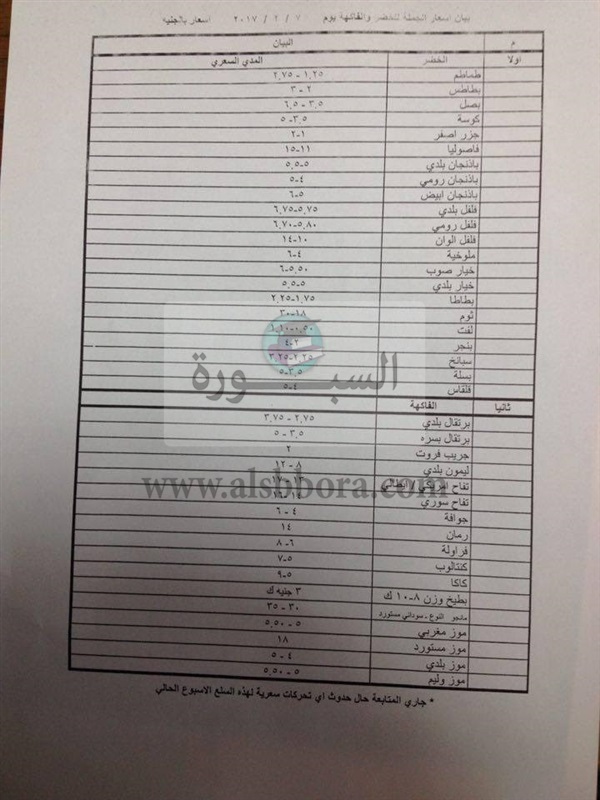 بيان اسعار الجملة للخضر والفاكهة يوم ٧ / ٢ / ٢٠١٧ اسعار بالجنيه
م البيان
اولا الخضر المدي السعري
طماطم ١,٢٥ - ٢,٧٥
بطاطس ٢ - ٣
بصل ٣,٥ - ٦,٥
كوسة ٣,٥ - ٥
جزر اصفر ١-٢
فاصوليا ١١-١٥
باذنجان بلدي ٥-٥,٥
باذنجان رومي ٤-٥
باذنجان ابيض ٥-٦
فلفل بلدي ٥,٧٥-٦,٧٥
فلفل رومي ٥,٨٠-٦,٧٠
فلفل الوان ١٠-١٤
ملوخية ٤-٦
خيار صوب ٥,٥٠-٦
خيار بلدي ٥-٥,٥
بطاطا ١,٧٥-٢,٢٥
ثوم ١٨-٣٠
لفت
بنجر ٢-٤
سبانخ ٢,٢٥-٣,٢٥
بسلة ٣,٥-٥
قلقاس ٤-٥
السبورة
ثانيا الفاكهة
برتقال بلدي ٢,٧٥ - ٣,٧٥
برتقال بسره ٣,٥ - ٥
جريب فروت ٢
ليمون بلدي ٨ - ١٢
تفاح امريكي / ايطالي
www.alsbbora.com
تفاح سوري
جوافة ٤ - ٦
رمان ١٤
فراولة ٦ - ٨
كنتالوب ٥-٧
كاكا ٥-٩
بطيخ وزن ٨-١٠ ك ٣ جنيه ك
مانجو النوع - سوداني مستورد ٣٠ - ٣٥
موز مغربي ٥ - ٥,٥٠
موز مستورد ١٨
موز بلدي ٤ - ٥
موز وليم ٥ - ٥,٥٠
* جاري المتابعة حال حدوث اي تحركات سعرية لهذه السلع الاسبوع الحالي